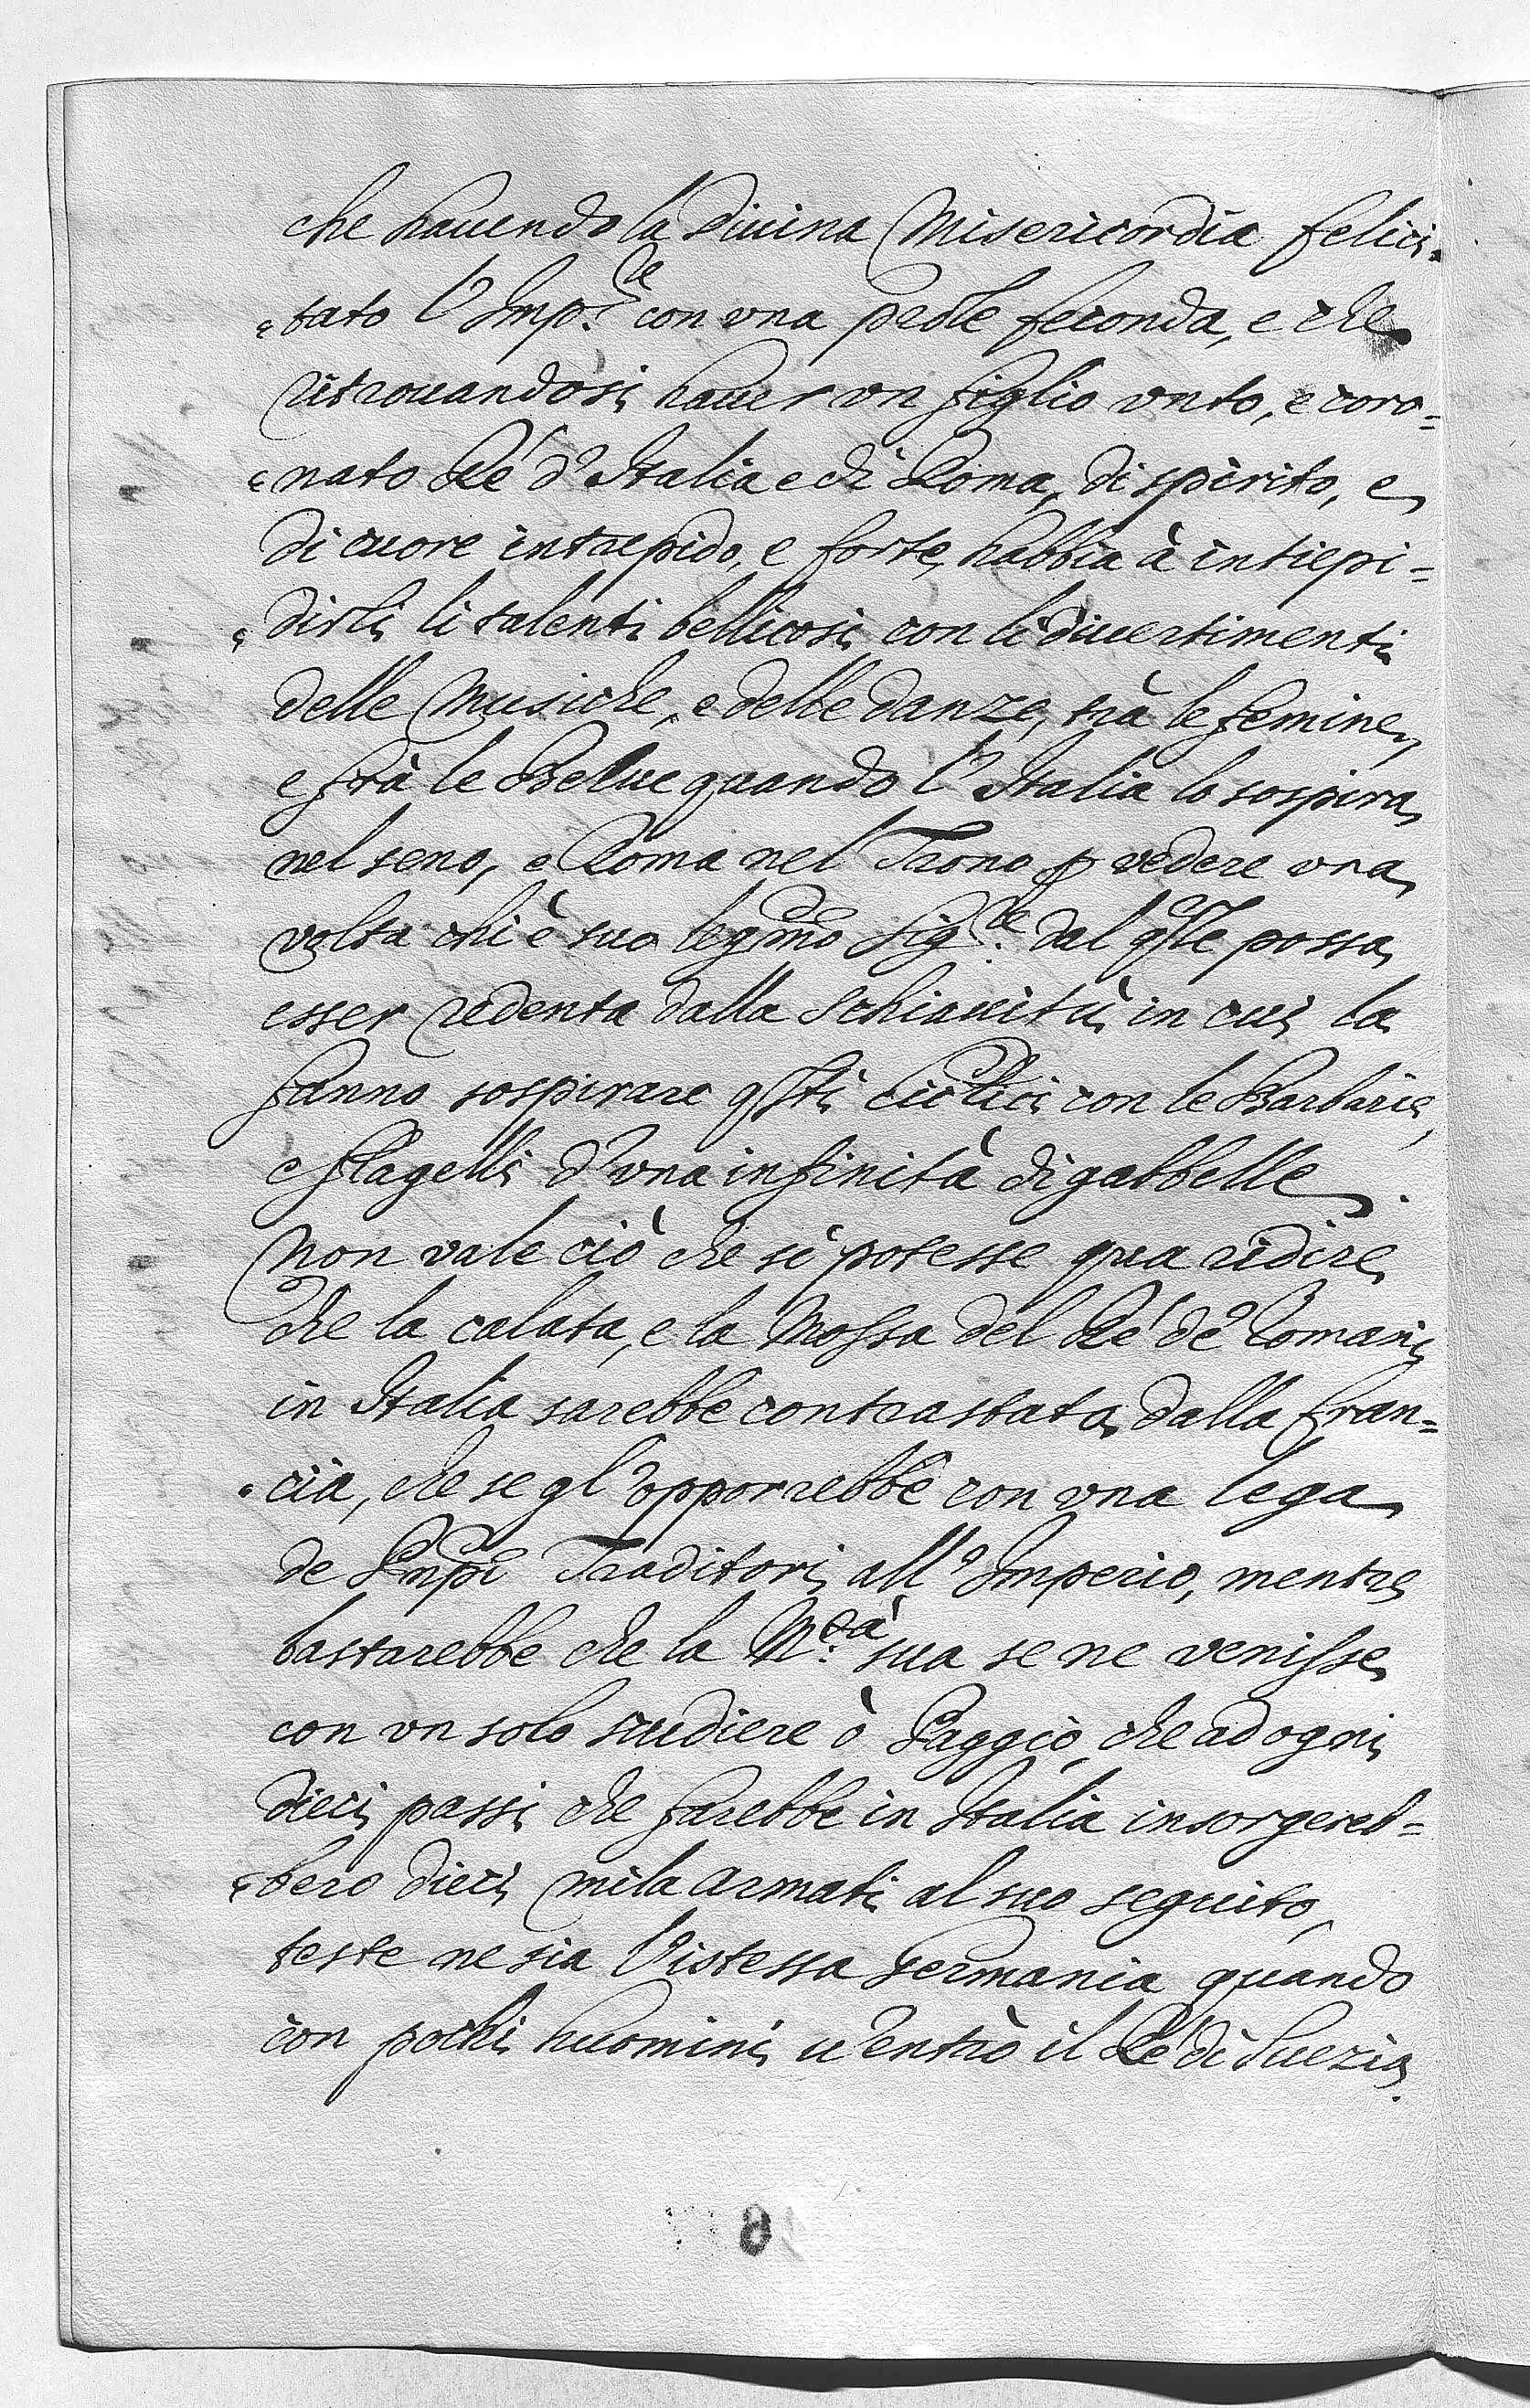 che hauendo la Diuina Misericordia felici-
tato l'Imp.re con vna prole feconda, e che
ritrouandosi hauer vn figlio vnto, e coro=
nato Rè d'Italia e di Roma, di spirito, e
di cuore intrepido, e forte, habbia à intiepi=
dirli li talenti bellicosi con li diuertimenti
delle Musiche, e delle danze, trà le femine,
e frà le Belue quando l'Italia lo sospira
nel seno, e Roma nel Trono p vedere vna
volta chi è suo legmo Sig.re dal qle possa
esser redenta dalla schiauitù in cui la
fanno sospirare qsti Ciclici con le Barbarie,
e flagelli d'vna infinità di gabbelle.
Non vale ciò che si potesse qua ridire
che la calata, e la Mossa del Rè de Romani
in Italia sarebbe contrastata dalla Fran=
cia, che se gl'opporrebbe con vna lega
de Pnpi Traditori all'Imperio, mentre
bastarebbe che la M.tà sua se ne venisse
con vn solo scudiere ò Paggio, che ad ogni
dieci passi che farebbe in Italia insorgereb=
bero dieci mila armati al suo seguito,
teste ne sia l'istessa Germania quando
con pochi huomini u'entrò il Rè di Suezia.
8